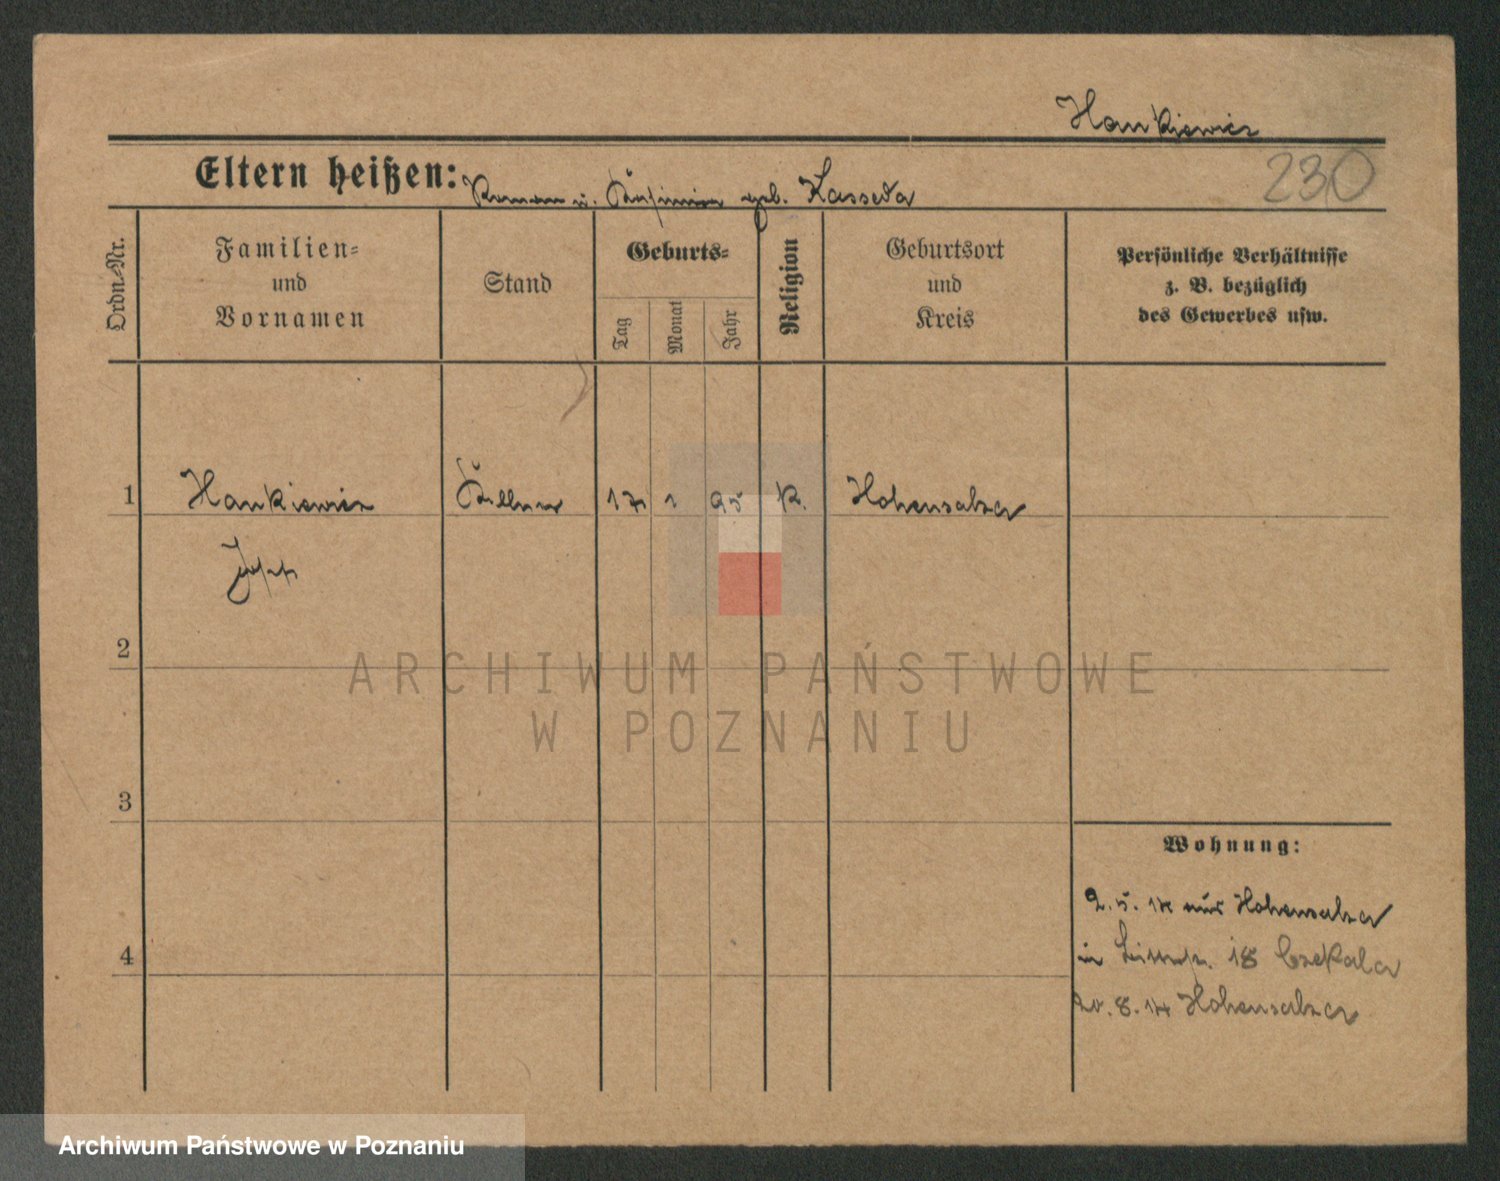 Hankiewicz
Eltern heißen: Roman u. geb. Kasseda
230
Ordn.-Nr.
Familien-
und
Vornamen
Stand
Geburts-
Tag
Monat
Jahr
Religion
Geburtsort
und
Kreis
Persönliche Verhältnisse
z. B. bezüglich
des Gewerbes usw.
1 Hankiewicz Kellner 17 1 95 K. Hohensalza
Josef
2
3
4
Wohnung:
2.5.14 aus Hohensalza
in 18 Czekala
20.8.14 Hohensalza
ARCHIWUM PAŃSTWOWE
W POZNANIU
Archiwum Państwowe w Poznaniu